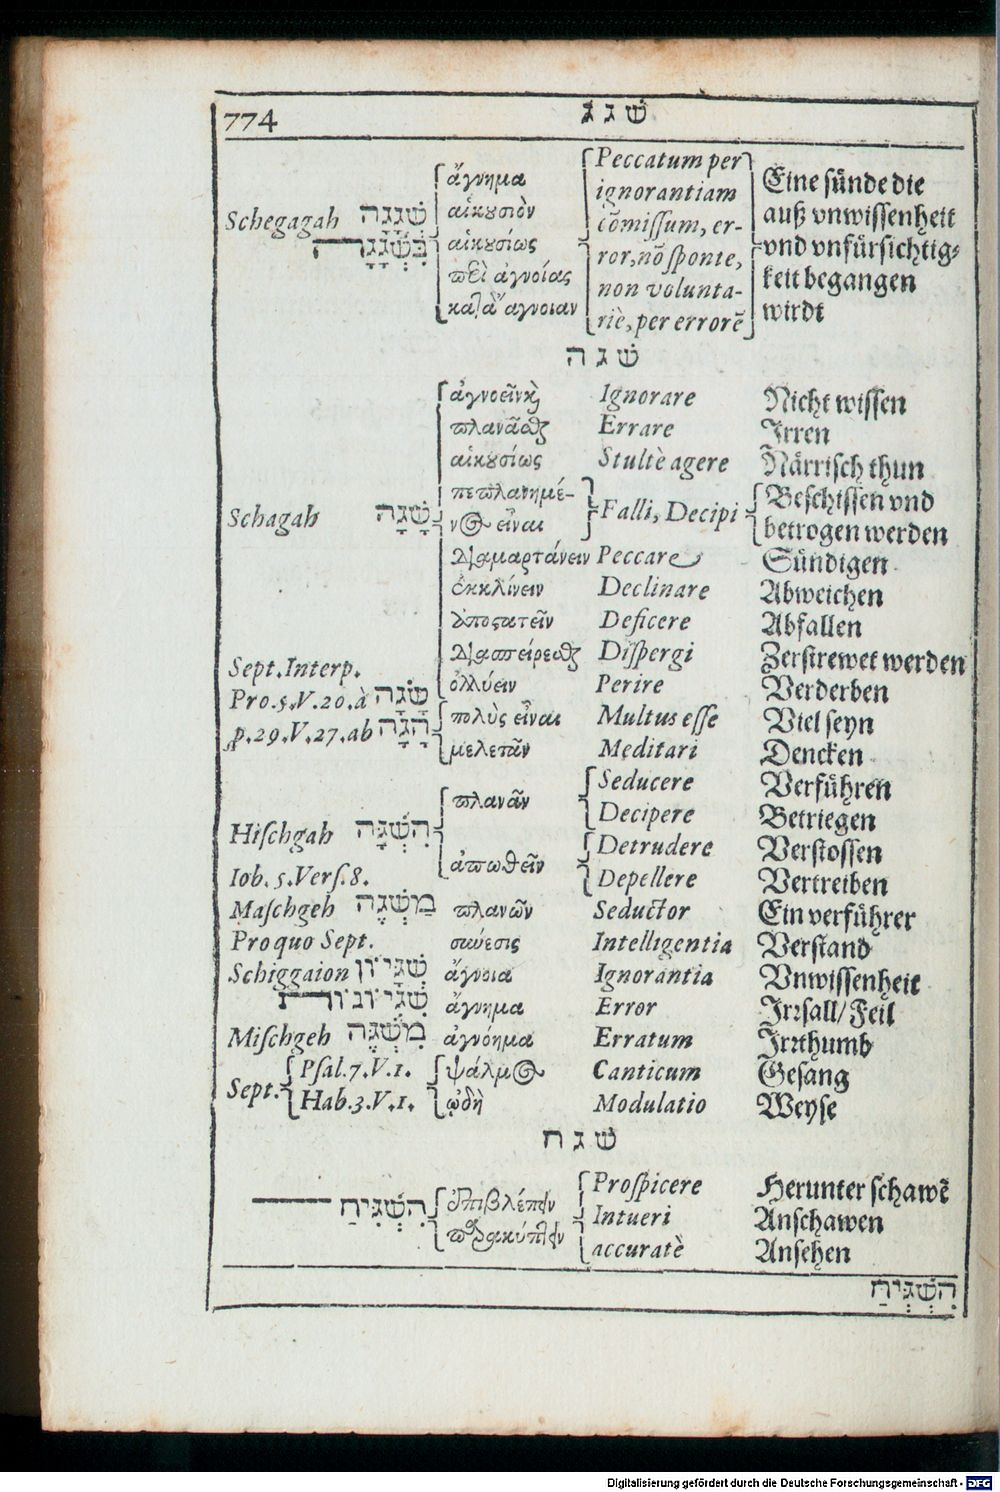 774 שׁגג
Schegagah שְׁגָגָה ἄγνημα Peccatum per Eine sünde die
αἰκȣσιὸν ignorantiam auß vnwissenheit
αἰκȣσίως cõmissum, er- vnd vnfürsichtig-
ἀγνοίας ror, nõ sponte, keit begangen
ἄγνοιαν non volunta- wirdt
riè, per errorẽ
שׁגה
Ignorare Nicht wissen
Errare Irren
αἰκȣσίως Stultè agere Närrisch thun
πεπλανημέ- Beschissen vnd
Schagah שָׁגָה εἶναι Falli, Decipi betrogen werden
Peccare Sündigen
ἐκκλίνειν Declinare Abweichen
ἀποςατεῖν Deficere Abfallen
Dispergi Zerstrewet werden
Sept. Interp. ὀλλύειν Perire Verderben
Pro. 5. V. 20. à שׂגה πολὺς εἶναι Multus esse Viel seyn
p. 29. V. 27. ab הָגָה μελετᾶν Meditari Dencken
πλανᾶν Seducere Verführen
Decipere Betriegen
Hischgah הִשְׁגָּה ἀπωθεῖν Detrudere Verstossen
Iob. 5. Vers. 8. Depellere Vertreiben
Maschgeh מַשְׁגֶּה πλανῶν Seductor Ein verführer
Pro quo Sept. σιύεσις Intelligentia Verstand
Schiggaion ἄγνοια Ignorantia Vnwissenheit
ἄγνημα Error Irrsall/ Feil
Mischgeh מִשְׁגֶּה ἀγνόημα Erratum Irrthumb
Sept. Psal. 7. V. 1. Canticum Gesang
Hab. 3. V. 1. ᾠδὴ Modulatio Weyse
שׁגח
הִשְׁגִּיחַ Prospicere Herunter schawẽ
Intueri Anschawen
accuratè Ansehen
הִשְׁגִּיחַ
Digitalisierung gefördert durch die Deutsche Forschungsgemeinschaft - DFG